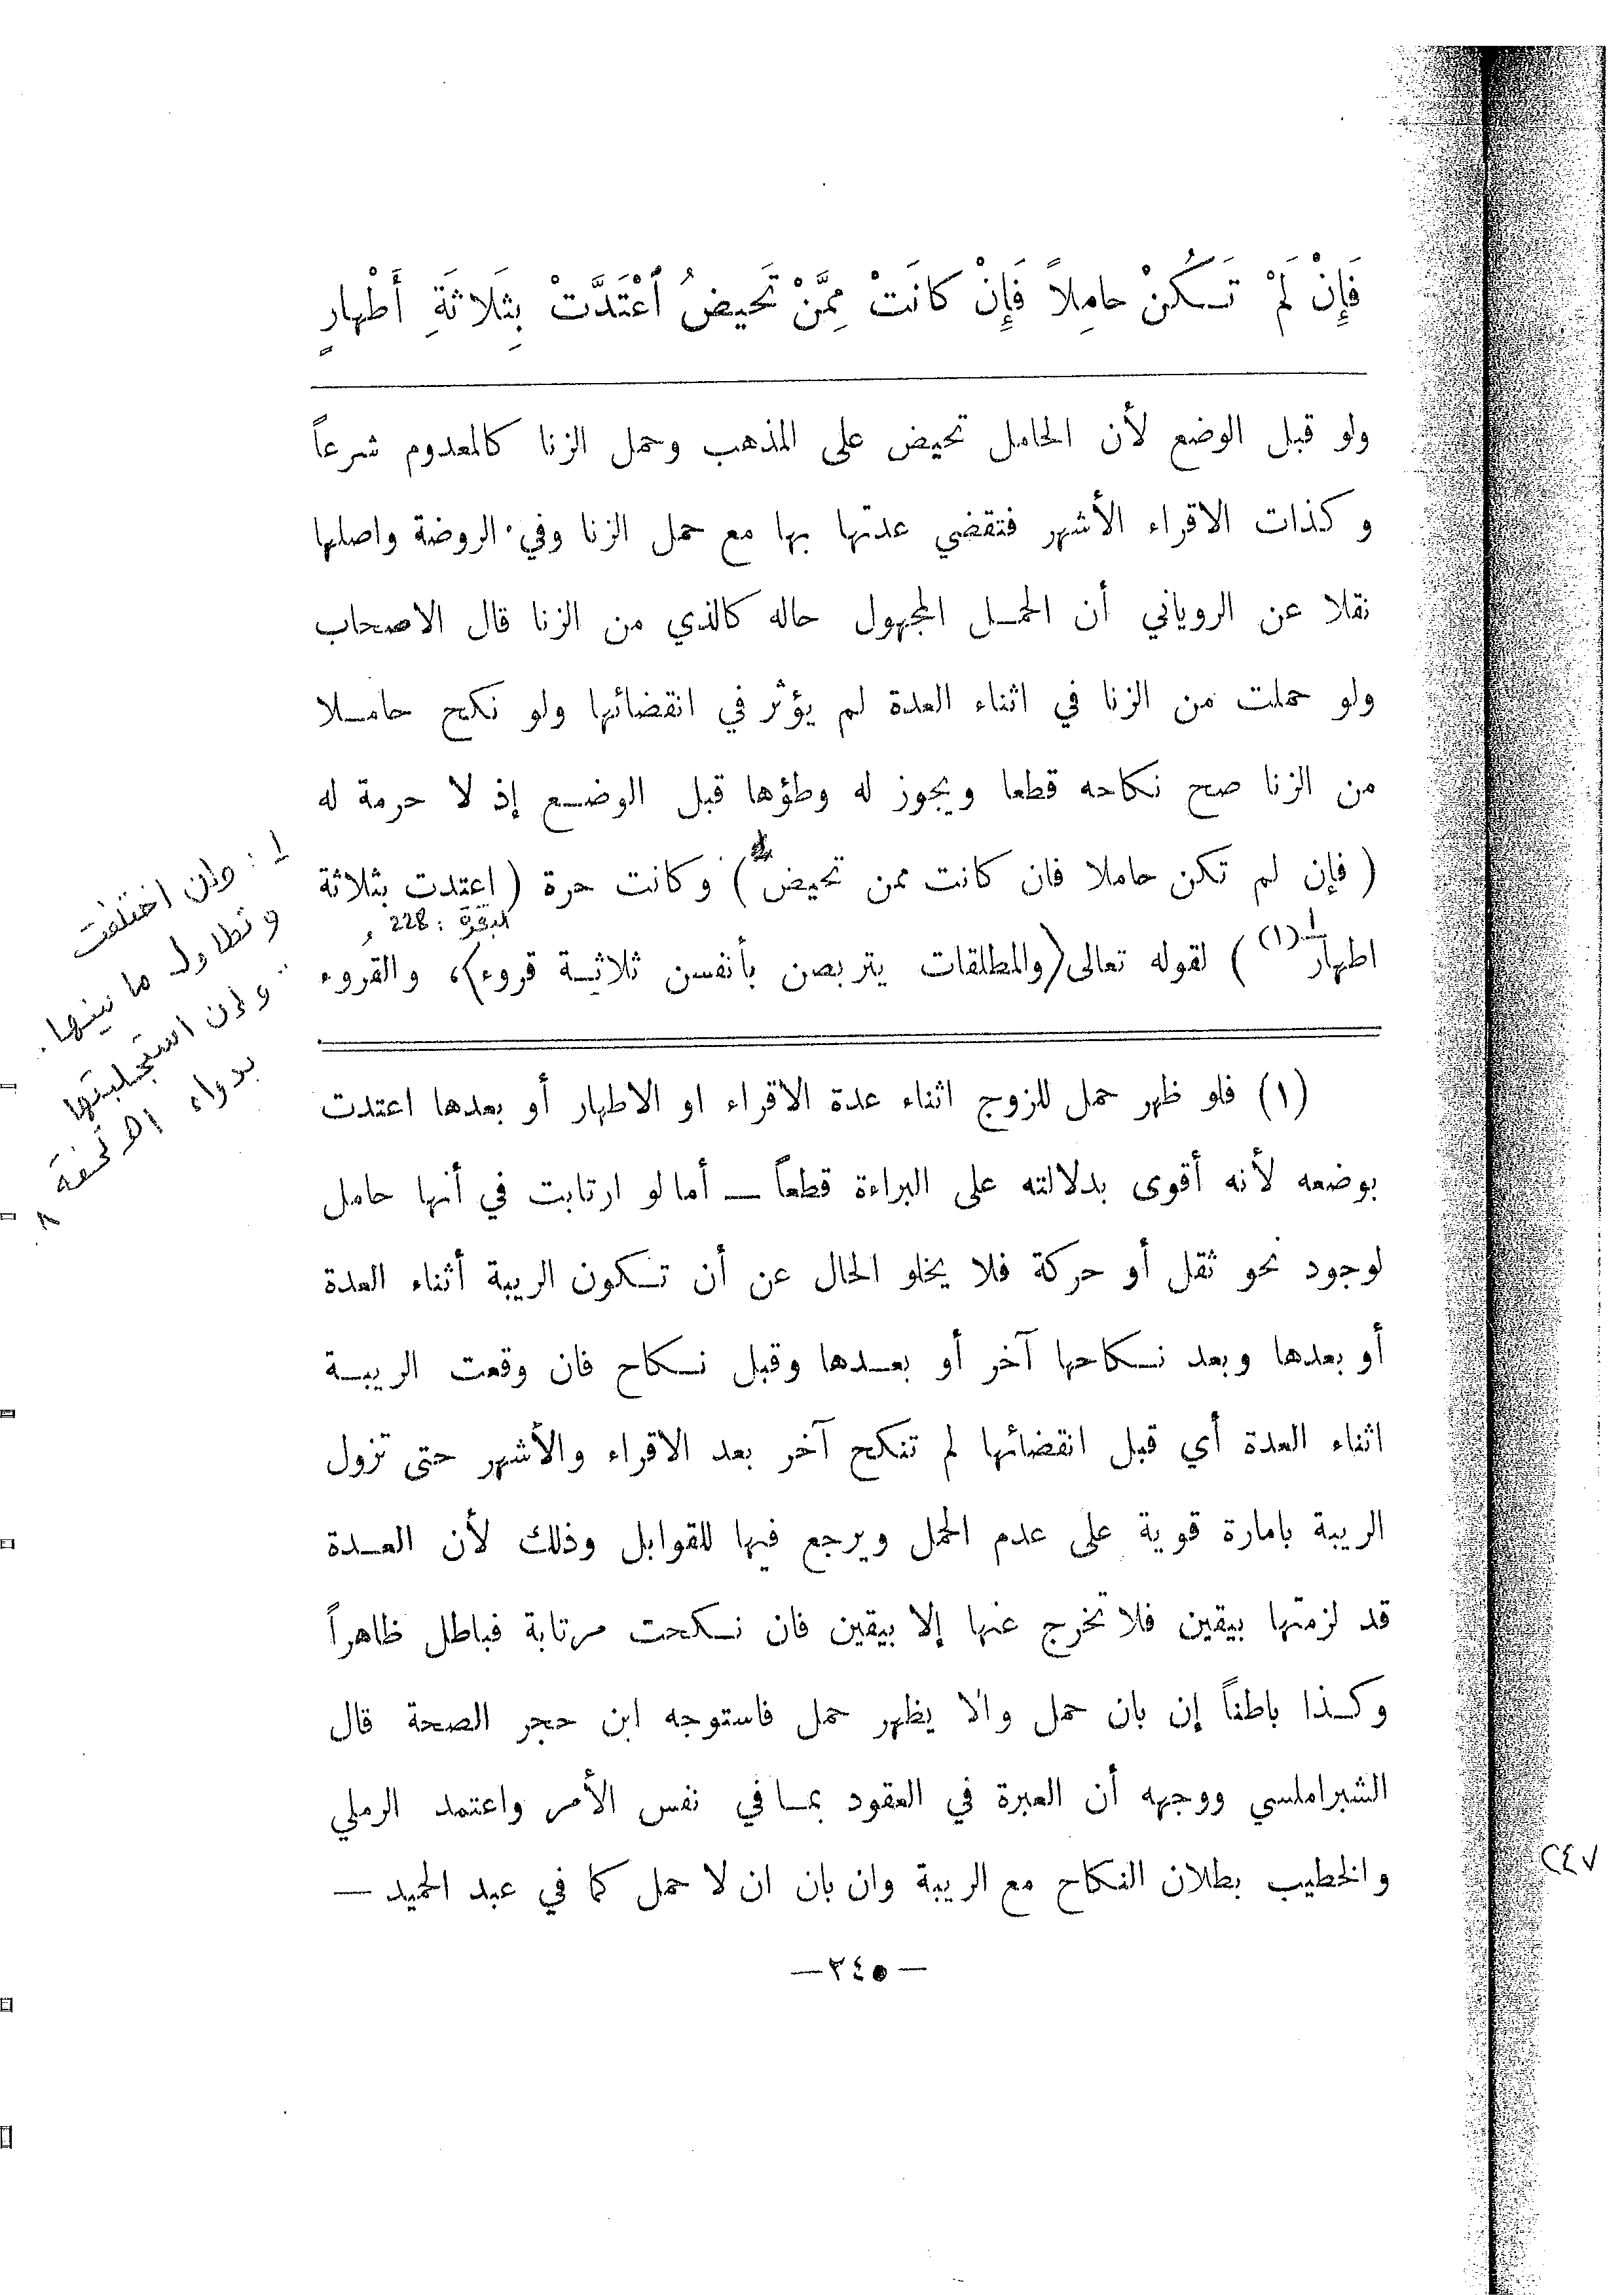 فَإِنْ لَمْ تَكُنْ حامِلاً فَإِنْ كانَتْ مِمَّنْ تَحيضُ ٱعْتَدَّتْ بِثَلاثَةِ أَطْهارٍ
ولو قبل الوضع لأن الحامل تحيض على المذهب وحمل الزنا كالمعدوم شرعاً
وكذات الاقراء الأشهر فتقضي عدتها بها مع حمل الزنا وفي الروضة واصلها
نقلا عن الروياني أن الحمل المجهول حاله كالذي من الزنا قال الاصحاب
ولو حملت من الزنا في اثناء العدة لم يؤثر في انقضائها ولو نكح حاملا
من الزنا صح نكاحه قطعا ويجوز له وطؤها قبل الوضع إذ لا حرمة له
( فإن لم تكن حاملا فان كانت ممن تحيض ) وكانت حرة ( اعتدت بثلاثة
البقرة : 228
اطهار (١) ) لقوله تعالى (والمطلقات يتربصن بأنفسن ثلاثة قروء)، والقروء
١ : وإن اختلفت
وتطاول ما بينها .
وإن استجلبتها
بدواء اهـ تحفة
٨
(١) فلو ظهر حمل للزوج اثناء عدة الاقراء او الاطهار أو بعدها اعتدت
بوضعه لأنه أقوى بدلالته على البراءة قطعاً — أما لو ارتابت في أنها حامل
لوجود نحو ثقل أو حركة فلا يخلو الحال عن أن تكون الريبة أثناء العدة
أو بعدها وبعد نكاحها آخر أو بعدها وقبل نكاح فان وقعت الريبة
اثناء العدة أي قبل انقضائها لم تنكح آخر بعد الاقراء والأشهر حتى تزول
الريبة بامارة قوية على عدم الحمل ويرجع فيها للقوابل وذلك لأن العدة
قد لزمتها بيقين فلا تخرج عنها إلا بيقين فان نكحت مرتابة فباطل ظاهراً
وكذا باطناً إن بان حمل والا يظهر حمل فاستوجه ابن حجر الصحة قال
الشبراملسي ووجهه أن العبرة في العقود بما في نفس الأمر واعتمد الرملي
والخطيب بطلان النكاح مع الريبة وان بان ان لا حمل كما في عبد الحميد —
٢٤٧
— ٣٤٥ —